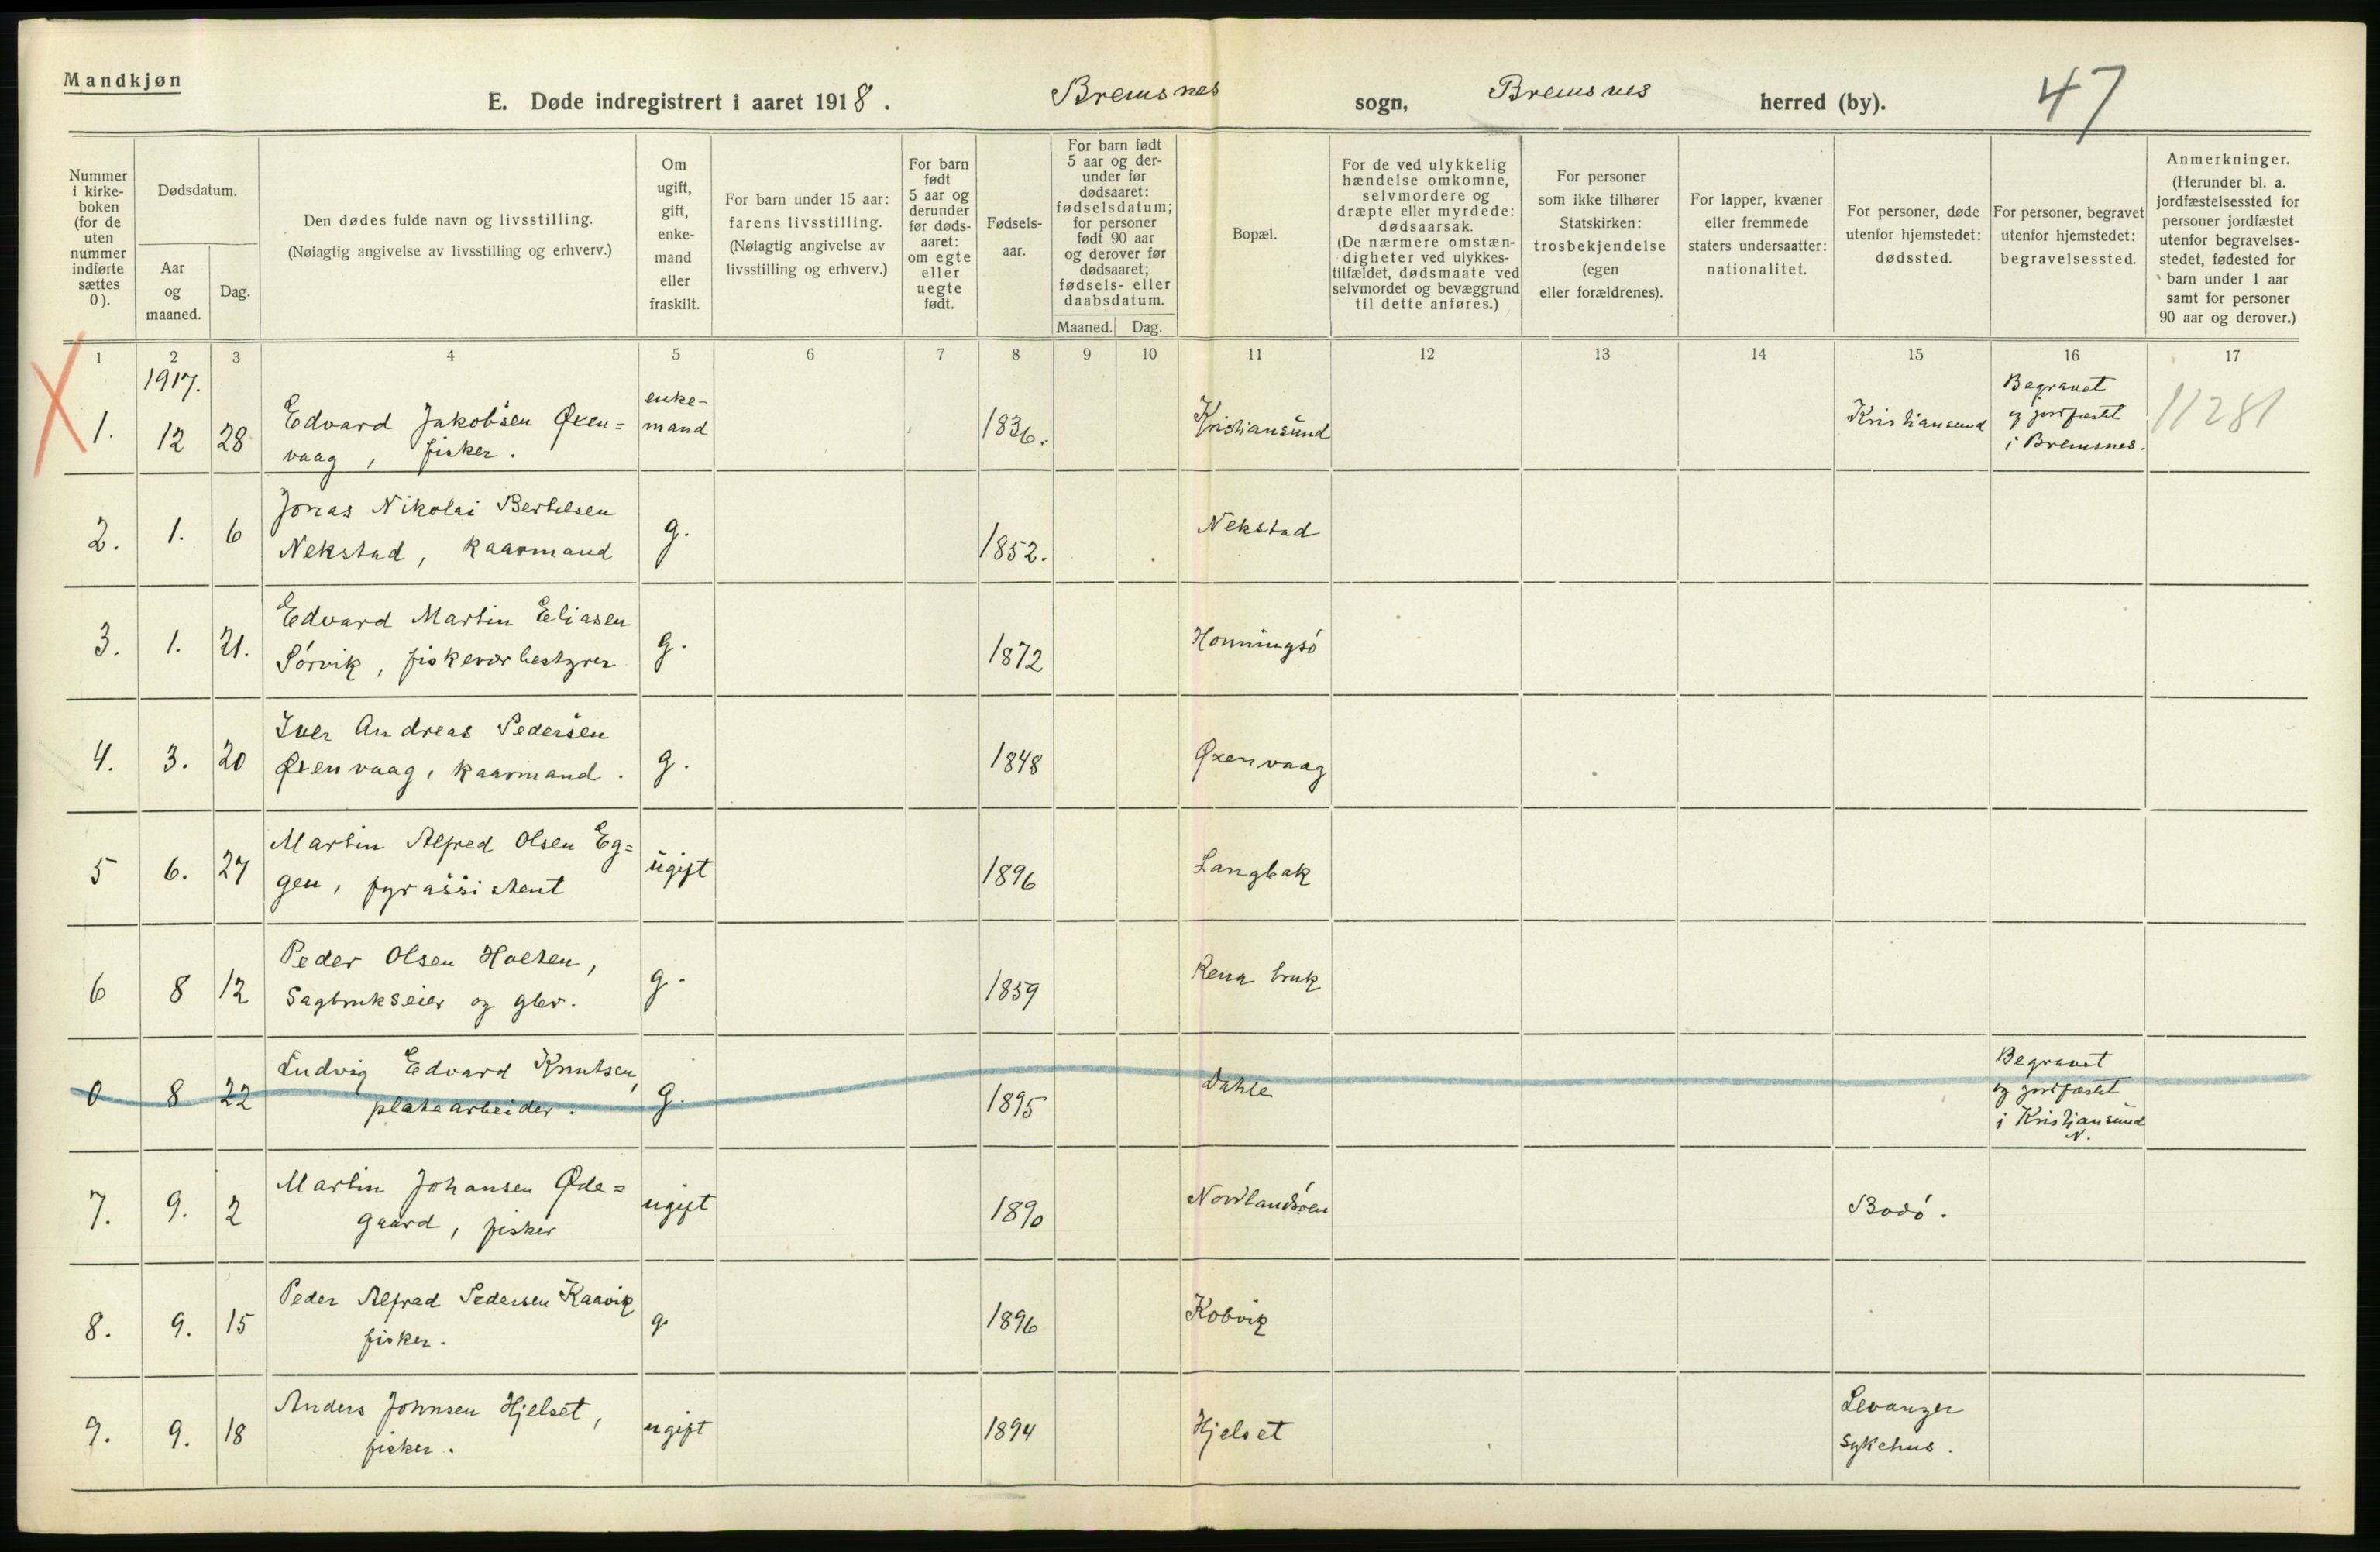 Mandkjøn
E. Døde indregistrert i aaret 1918. Bremsnes sogn, Bremsnes herred (by). 47
Nummer i kirke-boken (for de uten nummer indførte sættes 0).
Dødsdatum.
Aar og maaned.
Dag.
Den dødes fulde navn og livsstilling.
(Nøiagtig angivelse av livsstilling og erhverv.)
Om ugift, gift, enke-mand eller fraskilt.
For barn under 15 aar: farens livsstilling. (Nøiagtig angivelse av livsstilling og erhverv.)
For barn født 5 aar og derunder før døds-aaret: om egte eller uegte født.
Fødsels-aar.
For barn født 5 aar og der-under før dødsaaret: fødselsdatum; for personer født 90 aar og derover før dødsaaret; fødsels- eller daabsdatum.
Maaned. Dag.
Bopæl.
For de ved ulykkelig hændelse omkomne, selvmordere og dræpte eller myrdede: dødsaarsak. (De nærmere omstæn-digheter ved ulykkes-tilfældet, dødsmaate ved selvmordet og bevæggrund til dette anføres.)
For personer som ikke tilhører Statskirken: trosbekjendelse (egen eller forældrenes).
For lapper, kvæner eller fremmede staters undersaatter: nationalitet.
For personer, døde utenfor hjemstedet: dødssted.
For personer, begravet utenfor hjemstedet: begravelsessted.
Anmerkninger. (Herunder bl. a. jordfæstelsessted for personer jordfæstet utenfor begravelses-stedet, fødested for barn under 1 aar samt for personer 90 aar og derover.)
1 2 3 4 5 6 7 8 9 10 11 12 13 14 15 16 17
1917.
1. 12 28 Edvard Jakobsen Øxen= vaag, fisker. enke-mand 1836. Kristiansund Kristiansund Begravet og jordfæstet i Bremsnes. 11281
2. 1. 6 Jonas Nikolai Bertelsen Nekstad, kaarmand g. 1852. Nekstad
3. 1. 21. Edvard Martin Eliasen Sórvik, fiskeværbestyrer g. 1872 Honningsó
4. 3. 20 Iver Andreas Pedersen Øxenvaag, kaarmand. g. 1848 Øxenvaag
5 6. 27 Martin Alfred Olsen Eg= gen, fyrassistent ugift 1896 Langbak
6 8 12 Peder Olsen Holten, Sagbrukseier og gbr. g. 1859 Rena bruk
0 8 22 Ludvig Edvard Knutsen, platearbeider. g. 1895 Dahle Begravet og jordfæstet i Kristiansund N.
7. 9. 2 Martin Johansen Øde= gaard, fisker ugift 1890 Nordlandsóen Bodó.
8. 9. 15 Peder Alfred Pedersen Kaavik fisker. g. 1896 Kobvik
9. 9. 18 Anders Johnsen Hjelset, fisker. ugift 1894 Hjelset Levanger sykehus.